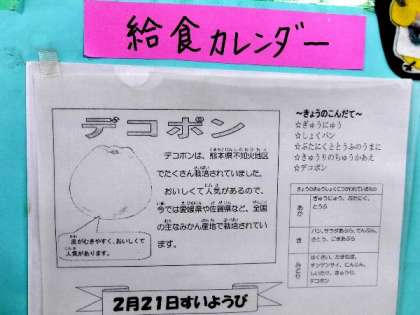 給食カレンダー
デコポン
デコポンは、熊本県不知火地区
でたくさん栽培されていました。
おいしくて人気があるので、
今では愛媛県や佐賀県など、全国
の主なみかん産地で栽培されてい
ます。
皮がむきやすく、おいしくて
人気があります。
2月21日すいようび
～きょうのこんだて～
☆ぎゅうにゅう
☆しょくパン
☆ぶたにくととうふのうまに
☆きゅうりのちゅうかあえ
☆デコポン
きょうのきゅうしょくにつかわれているもの
あか
ぎゅうにゅう、ぶたにく、
とうふ
き
パン、サラダあぶら、でんぷん、
さとう、ごまあぶら
みどり
はくさい、たまねぎ、
チンゲンサイ、にんじん、
しいたけ、きゅうり、
デコポン